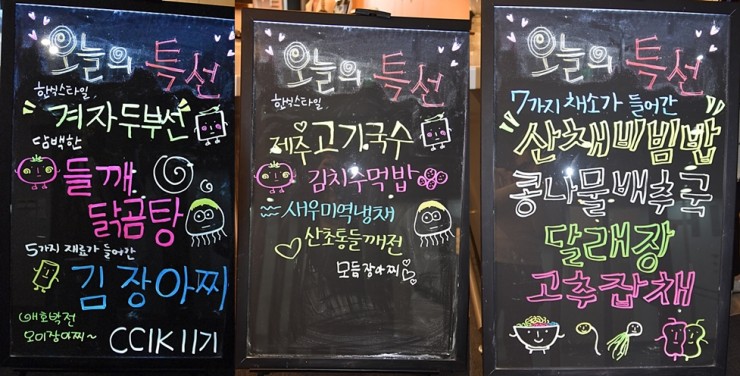 오늘의
특선
한식스타일
겨자두부선
담백한
들깨
닭곰탕
5가지 재료가 들어간
김장아찌
애호박전
오이장아찌~
CCIK 11기
오늘의
특선
한식스타일
제주고기국수
김치주먹밥
새우미역냉채
산초통들깨전
모듬장아찌
오늘의
특선
7가지 채소가 들어간
산채비빔밥
콩나물배추국
달래장
고추잡채